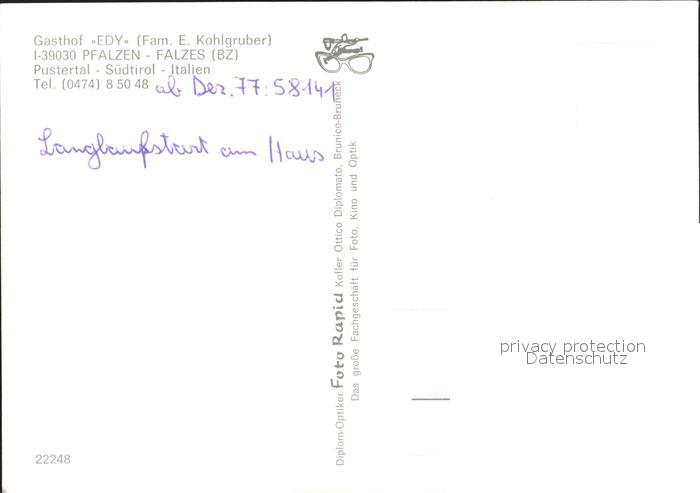 Gasthof »EDY« (Fam. E. Kohlgruber)
I-39030 PFALZEN - FALZES (BZ)
Pustertal - Südtirol - Italien
Tel. (0474) 8 50 48 ab Dez. 77: 58141
Langlaufstart am Haus
Diplom-Optiker Foto Rapid Kofler Ottico Diplomato, Brunico-Bruneck
Das große Fachgeschäft für Foto, Kino und Optik
privacy protection
Datenschutz
22248